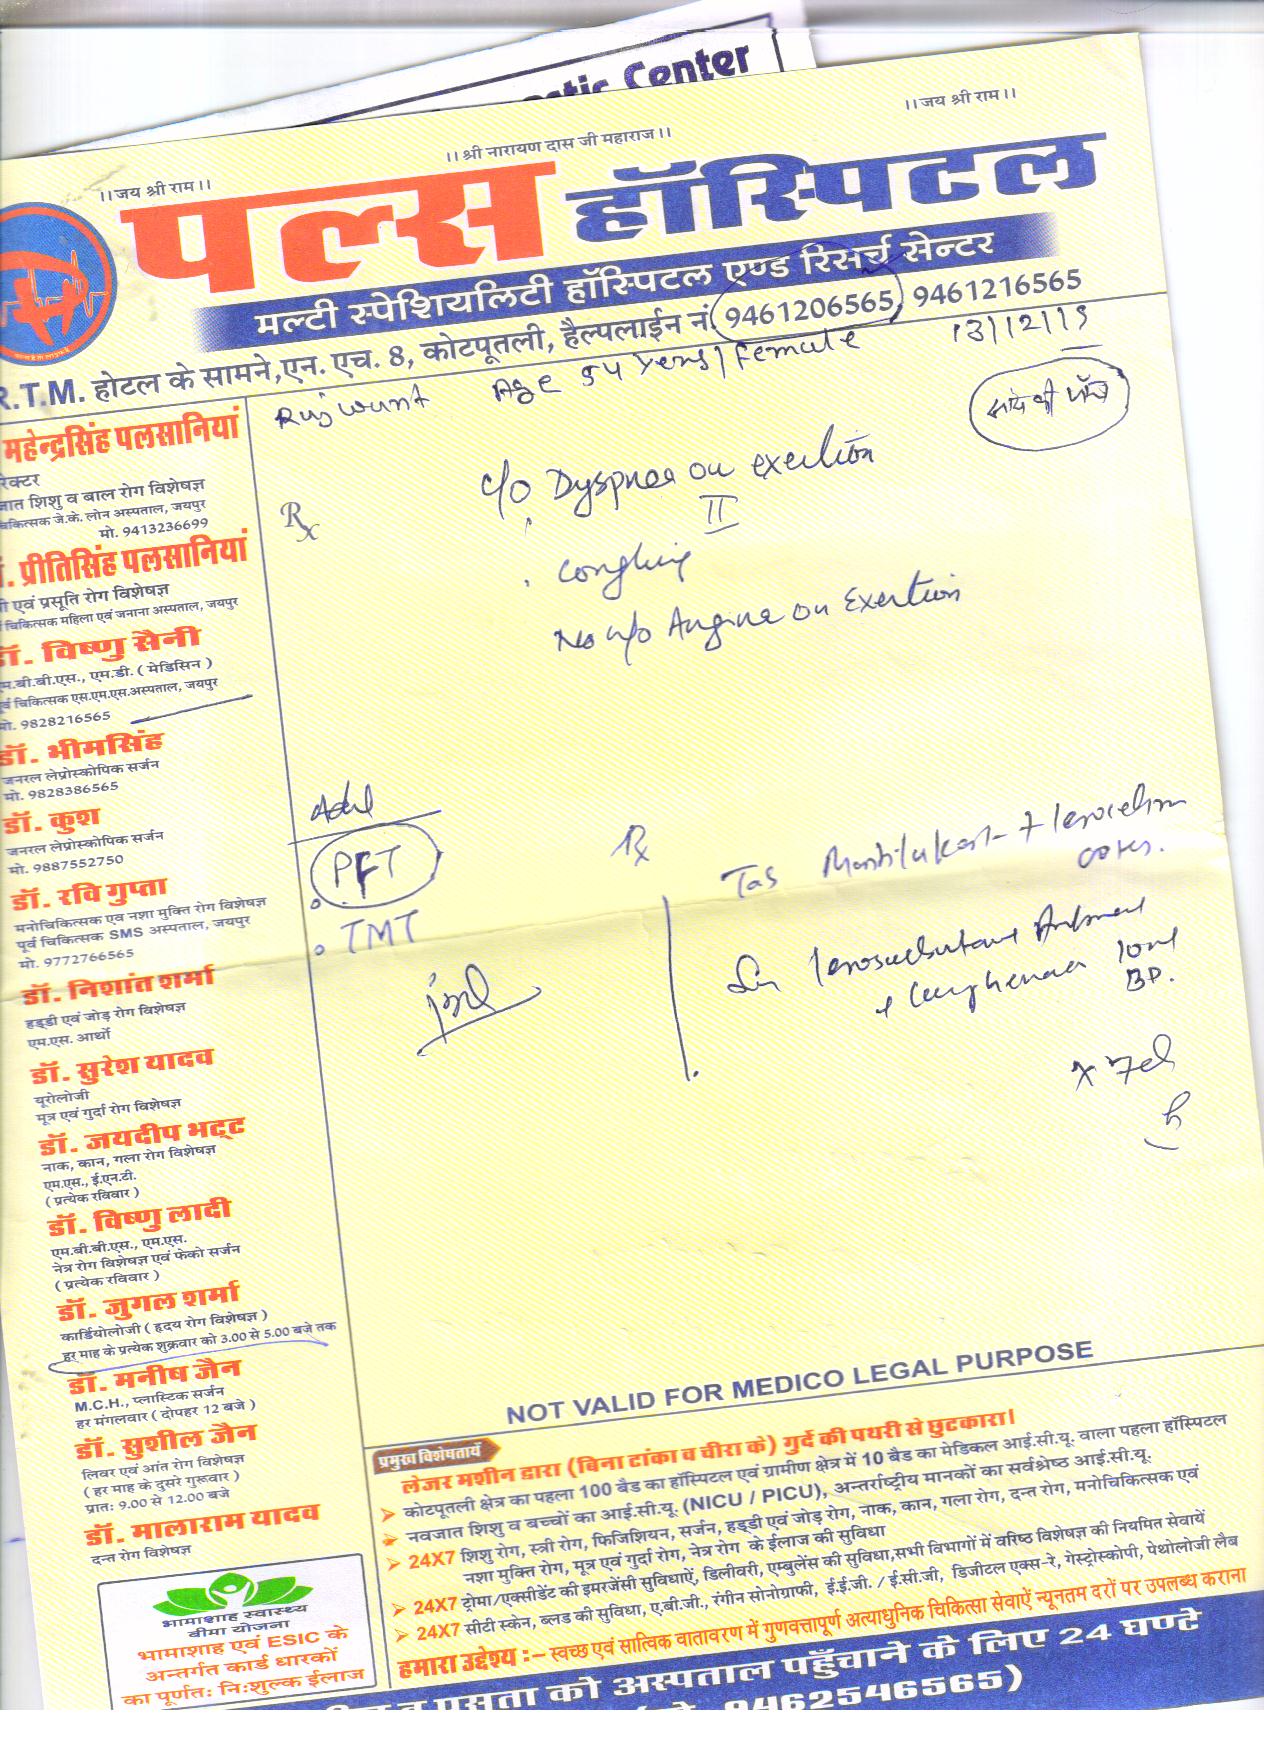 nostic Center
।।जय श्री राम।।
।। श्री नारायण दास जी महाराज।।
।।जय श्री राम।।
पल्स हॉस्पिटल
मल्टी स्पेशियलिटी हॉस्पिटल एण्ड रिसर्च सेन्टर
R.T.M. होटल के सामने,एन. एच. 8, कोटपूतली, हैल्पलाईन नं. 9461206565, 9461216565
Rajwant Age 54 Years / Female 13/12/19
c/o Dyspnea on exertion
II
Rx
coughing
No h/o Angina on Exertion
Adv
PFT
TMT
Rx
Tab
+ 
BD.
x 7d
महेन्द्रसिंह पलसानियां
रेक्टर
जात शिशु व बाल रोग विशेषज्ञ
चिकित्सक जे.के. लोन अस्पताल, जयपुर
मो. 9413236699
. प्रीतिसिंह पलसानियां
ी एवं प्रसूति रोग विशेषज्ञ
चिकित्सक महिला एवं जनाना अस्पताल, जयपुर
डॉ. विष्णु सैनी
एम.बी.बी.एस., एम.डी. ( मेडिसिन )
पूर्व चिकित्सक एस.एम.एस.अस्पताल, जयपुर
मो. 9828216565
डॉ. भीमसिंह
जनरल लेप्रोस्कोपिक सर्जन
मो. 9828386565
डॉ. कुश
जनरल लेप्रोस्कोपिक सर्जन
मो. 9887552750
डॉ. रवि गुप्ता
मनोचिकित्सक एव नशा मुक्ति रोग विशेषज्ञ
पूर्व चिकित्सक SMS अस्पताल, जयपुर
मो. 9772766565
डॉ. निशांत शर्मा
हड्डी एवं जोड़ रोग विशेषज्ञ
एम.एस. आर्थो
डॉ. सुरेश यादव
यूरोलोजी
मूत्र एवं गुर्दा रोग विशेषज्ञ
डॉ. जयदीप भट्ट
नाक, कान, गला रोग विशेषज्ञ
एम.एस., ई.एन.टी.
( प्रत्येक रविवार )
डॉ. विष्णु लादी
एम.बी.बी.एस., एम.एस.
नेत्र रोग विशेषज्ञ एवं फेको सर्जन
( प्रत्येक रविवार )
डॉ. जुगल शर्मा
कार्डियोलोजी ( हृदय रोग विशेषज्ञ )
हर माह के प्रत्येक शुक्रवार को 3.00 से 5.00 बजे तक
डॉ. मनीष जैन
M.C.H., प्लास्टिक सर्जन
हर मंगलवार ( दोपहर 12 बजे )
डॉ. सुशील जैन
लिवर एवं आंत रोग विशेषज्ञ
( हर माह के दुसरे गुरूवार )
प्रातः 9.00 से 12.00 बजे
डॉ. मालाराम यादव
दन्त रोग विशेषज्ञ
भामाशाह स्वास्थ्य
बीमा योजना
भामाशाह एवं ESIC के
अन्तर्गत कार्ड धारकों
का पूर्णतः निःशुल्क ईलाज
NOT VALID FOR MEDICO LEGAL PURPOSE
प्रमुख विशेषतायें
लेजर मशीन द्वारा (बिना टांका व चीरा के) गुर्दे की पथरी से छुटकारा।
कोटपूतली क्षेत्र का पहला 100 बैड का हॉस्पिटल एवं ग्रामीण क्षेत्र में 10 बैड का मेडिकल आई.सी.यू. वाला पहला हॉस्पिटल
नवजात शिशु व बच्चों का आई.सी.यू. (NICU / PICU), अन्तर्राष्ट्रीय मानकों का सर्वश्रेष्ठ आई.सी.यू.
24X7 शिशु रोग, स्त्री रोग, फिजिशियन, सर्जन, हड्डी एवं जोड़ रोग, नाक, कान, गला रोग, दन्त रोग, मनोचिकित्सक एवं
नशा मुक्ति रोग, मूत्र एवं गुर्दा रोग, नेत्र रोग के ईलाज की सुविधा
24X7 ट्रोमा/एक्सीडेंट की इमरजेंसी सुविधाऐं, डिलीवरी, एम्बुलेंस की सुविधा,सभी विभागों में वरिष्ठ विशेषज्ञ की नियमित सेवायें
24X7 सीटी स्केन, ब्लड की सुविधा, ए.बी.जी., रंगीन सोनोग्राफी, ई.ई.जी. / ई.सी.जी, डिजीटल एक्स-रे, गेस्ट्रोस्कोपी, पेथोलोजी लैब
हमारा उद्देश्य :– स्वच्छ एवं सात्विक वातावरण में गुणवत्तापूर्ण अत्याधुनिक चिकित्सा सेवाऐं न्यूनतम दरों पर उपलब्ध कराना
व प्रसूता को अस्पताल पहुँचाने के लिए 24 घण्टे
9462546565)